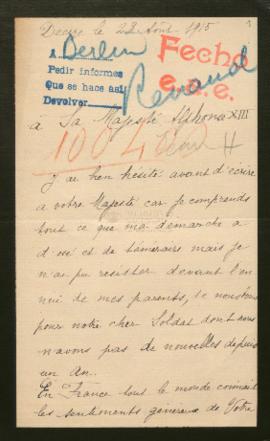 Decize le 23 Août 1915
1
A Berlin
Pedir informes
Que se hace así
Devolver
Fecho
e.a.e.
Renaud
à Sa Majesté Alphonse XIII
100400
J'ai bien hésité avant d'écrire
à votre Majesté car je comprends
tout ce que ma démarche a
d'osé et de téméraire mais je
n'ai pu résister devant l'en
nui de mes parents, de nous tous
pour notre cher Soldat dont nous
n'avons pas de nouvelles depuis
un An..
En France tout le monde connait
les sentiments généreux de Votre